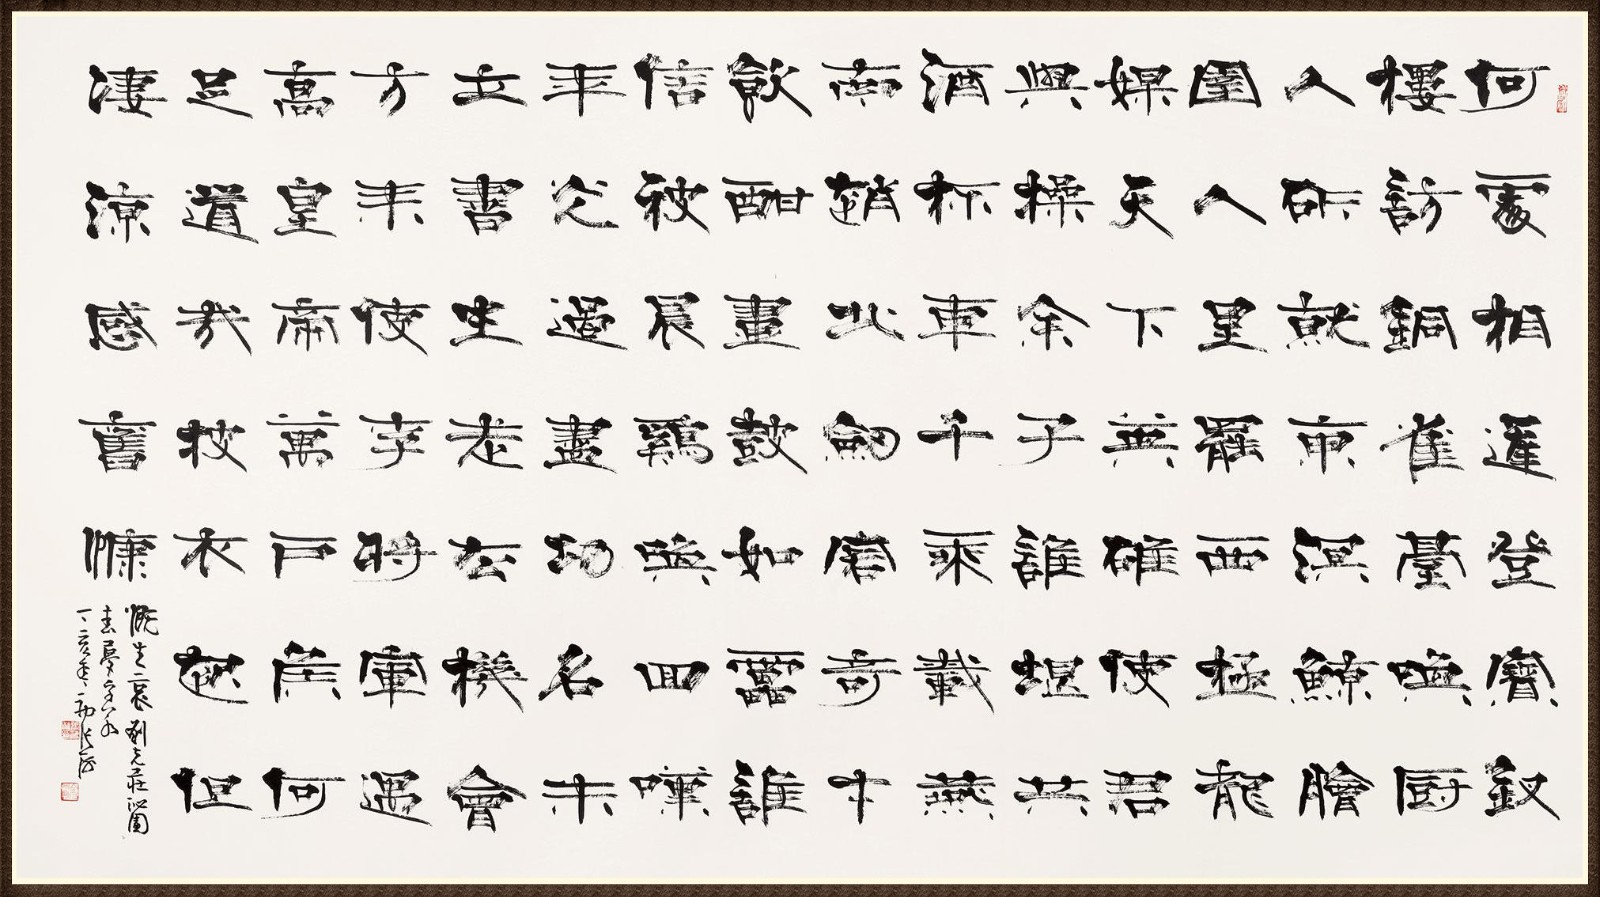 何處相逢登寶釵
樓訪銅雀臺喚厨
人斫就東溟鯨膾
圉人呈罷西極龍
媒天下英雄使君
與操余子誰堪共
酒杯車千乘載燕
南趙北劍客奇才
飲酣畫鼓如雷誰
信被晨鷄喚回嘆
年光過盡功名未
立書生老去機會
方來使李將軍遇
高皇帝萬戶侯何
足道哉披衣起但
凄涼感舊慷
慨生哀 劉克莊沁園
春夢孚若
丁亥年